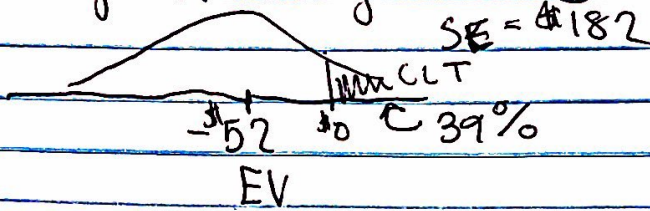 SE = $182
CLT
-$52 $0 39%
EV